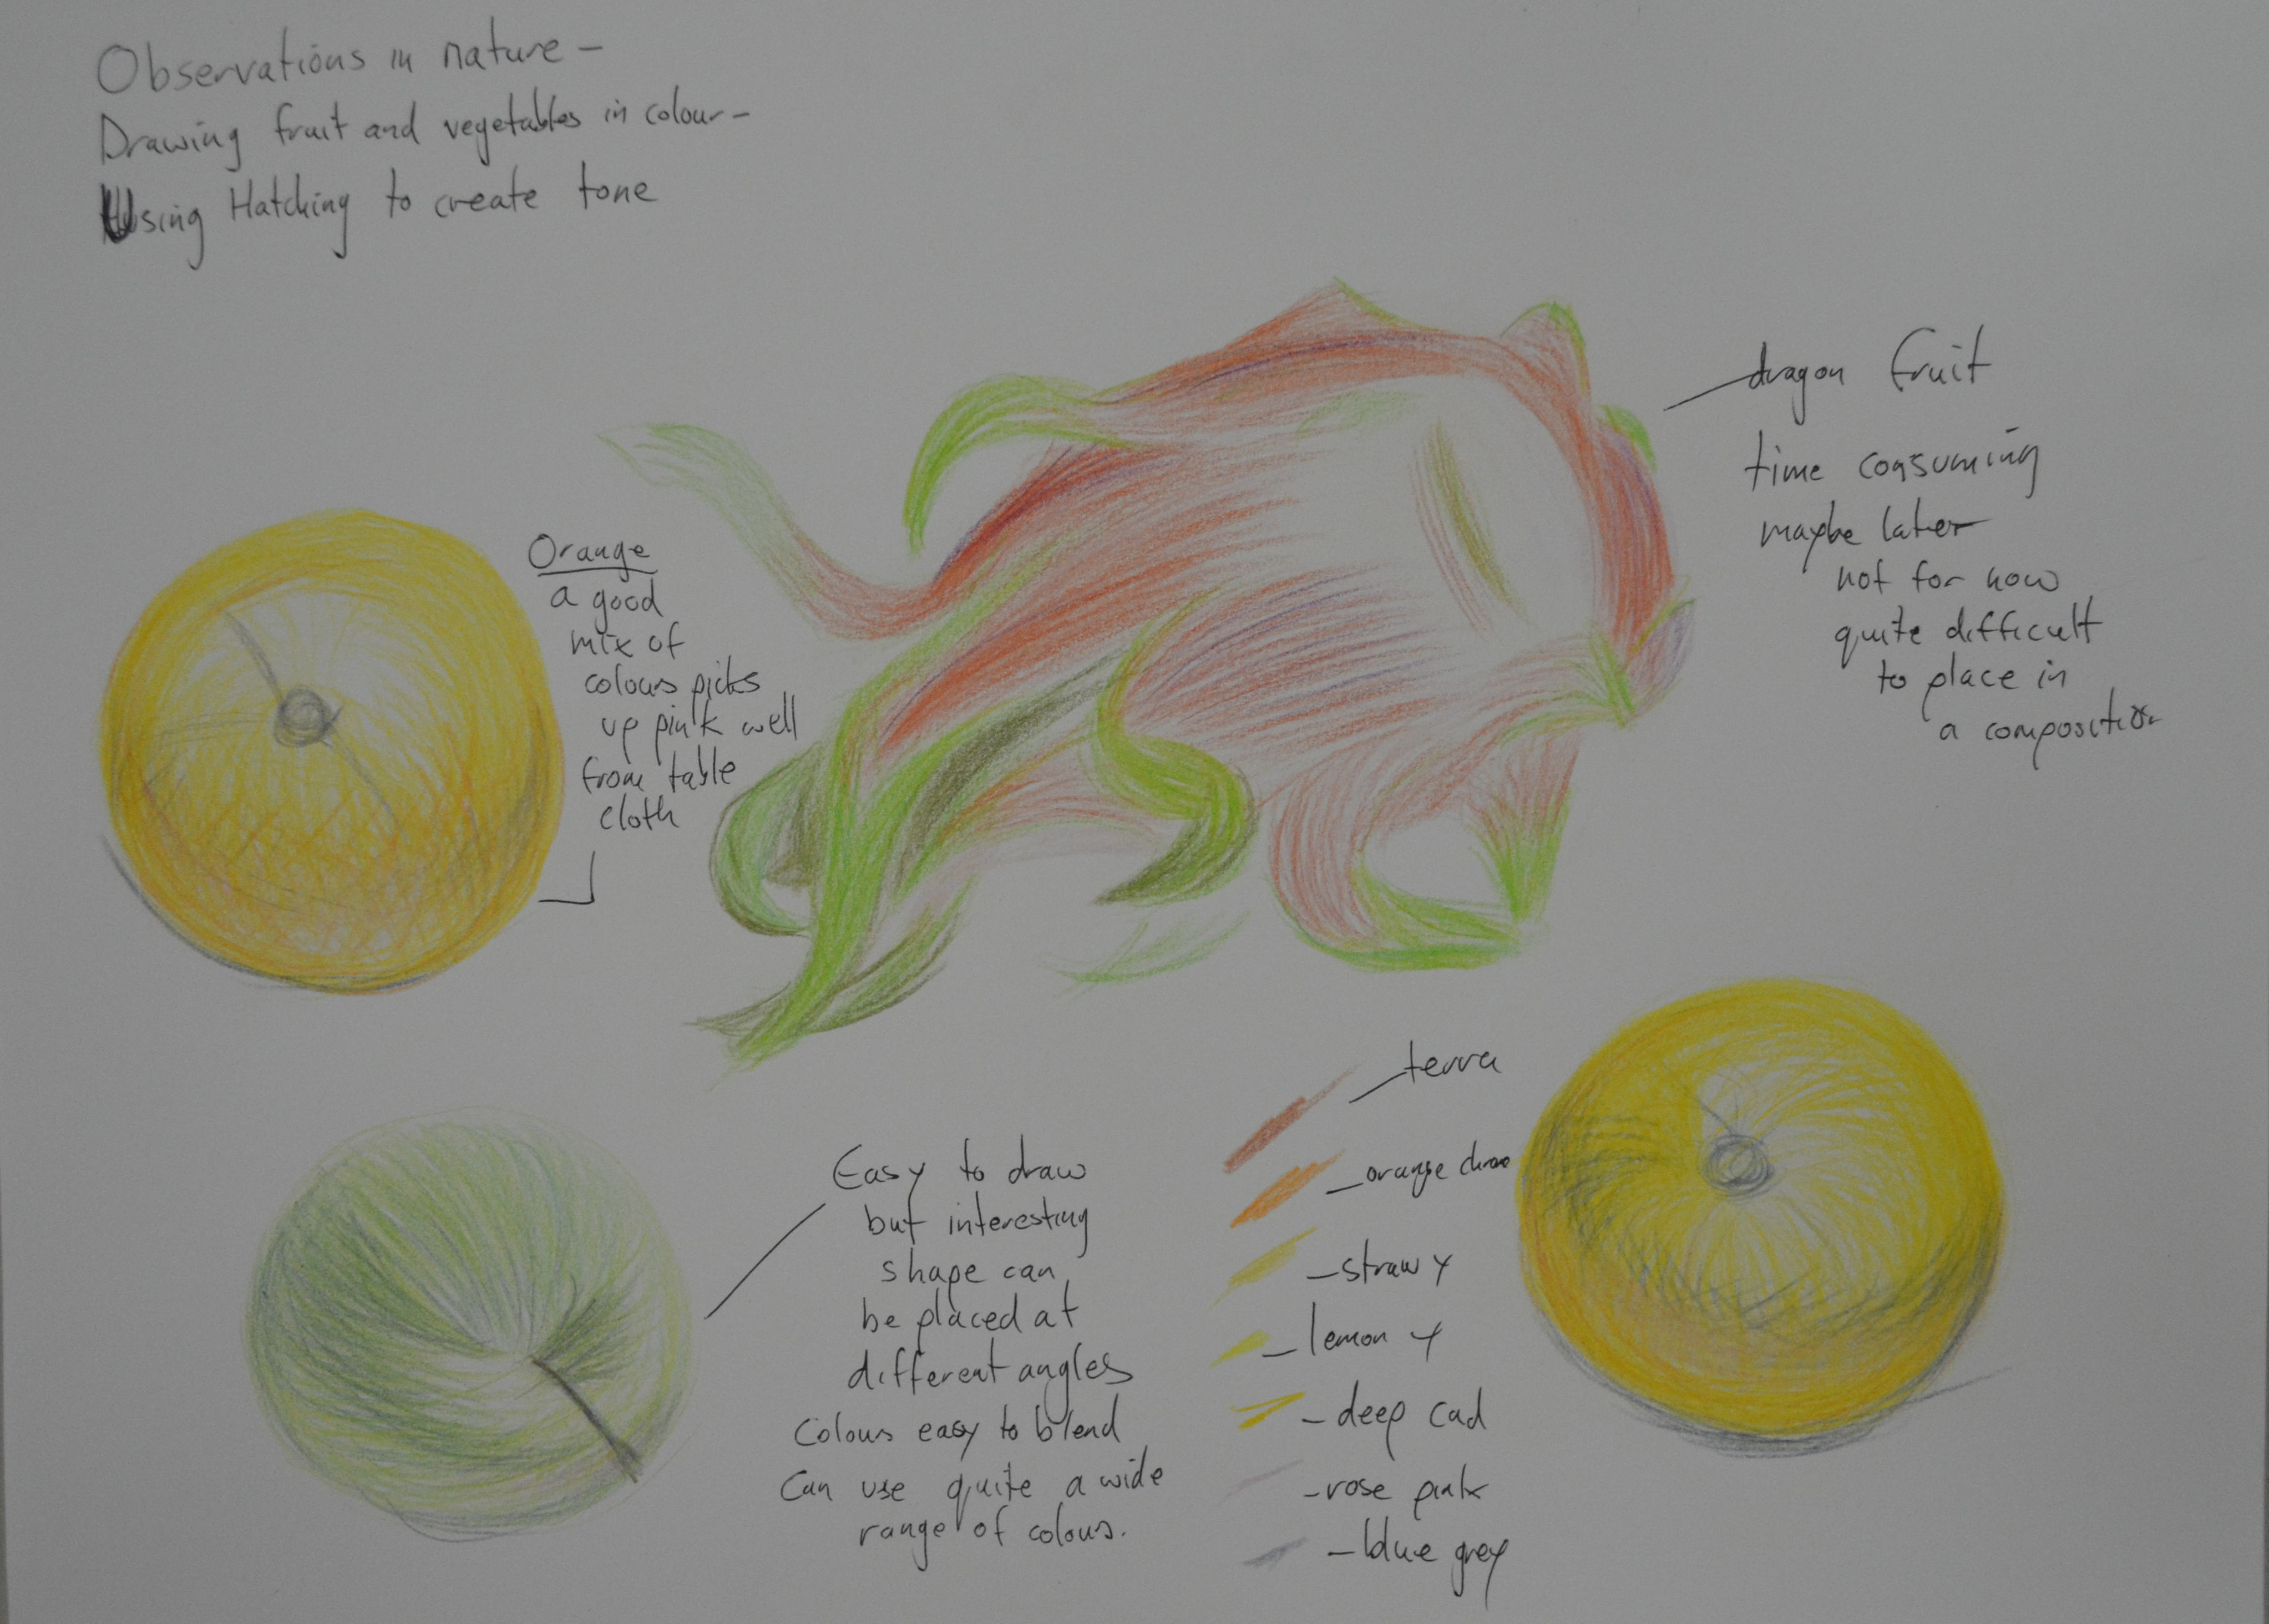 Observations in nature –
Drawing fruit and vegetables in colour –
Using Hatching to create tone
dragon fruit
time consuming
maybe later
not for now
quite difficult
to place in
a composition
Orange
a good
mix of
colours picks
up pink well
from table
cloth
terra
orange chrome
straw y
lemon y
deep cad
rose pink
blue grey
Easy to draw
but interesting
shape can
be placed at
different angles
Colours easy to blend
Can use quite a wide
range of colours.